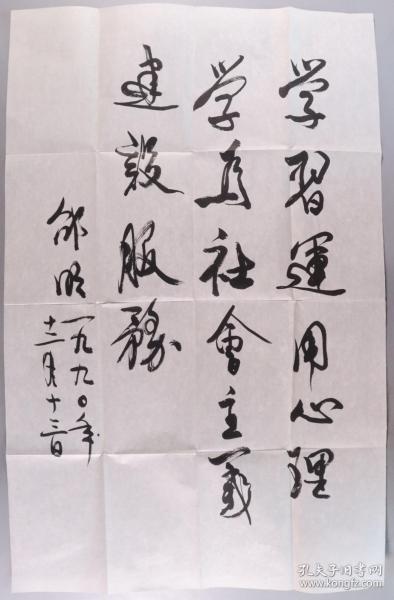 学習運用心理
学为社會主義
建設服務
邵明
一九九〇年
十二月十三日
孔夫子旧书网
www.kongfz.com